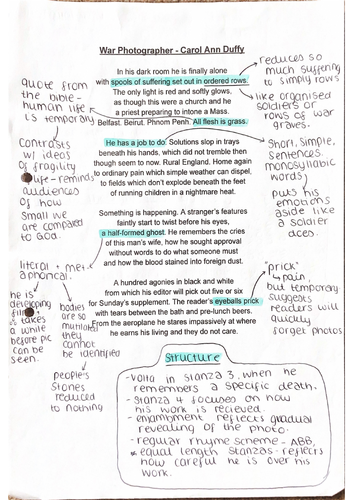 War Photographer - Carol Ann Duffy
In his dark room he is finally alone
with spools of suffering set out in ordered rows.
The only light is red and softly glows,
as though this were a church and he
a priest preparing to intone a Mass.
Belfast. Beirut. Phnom Penh. All flesh is grass.
He has a job to do. Solutions slop in trays
beneath his hands, which did not tremble then
though seem to now. Rural England. Home again
to ordinary pain which simple weather can dispel,
to fields which don't explode beneath the feet
of running children in a nightmare heat.
Something is happening. A stranger's features
faintly start to twist before his eyes,
a half-formed ghost. He remembers the cries
of this man's wife, how he sought approval
without words to do what someone must
and how the blood stained into foreign dust.
A hundred agonies in black and white
from which his editor will pick out five or six
for Sunday's supplement. The reader's eyeballs prick
with tears between the bath and pre-lunch beers.
From the aeroplane he stares impassively at where
he earns his living and they do not care.
quote from
the bible -
human life
is temporary
contrasts
w/ ideas
of fragility
life - reminds
audiences
of how
small we
are compared
to God.
literal + met
aphorical.
he is
developing
film
takes
a while
before pic
can be
seen.
bodies
are so
mutilated
they
cannot
be identified
peoples
stories
reduced
to nothing
reduces so
much suffering
to simply rows
like organised
soldiers or
rows of war
graves.
Short, simple,
sentences.
monosyllabic
words
puts his
emotions
aside like
a soldier
does.
"prick"
pain,
but temporary
suggests
readers will
quickly
forget photos.
Structure
- Volta in stanza 3, when he
remembers a specific death.
- Stanza 4 focuses on how
his work is recieved.
- enjambment reflects gradual
revealing of the photo.
- regular rhyme scheme - ABB,
equal length stanzas - reflects
how careful he is over his
work.